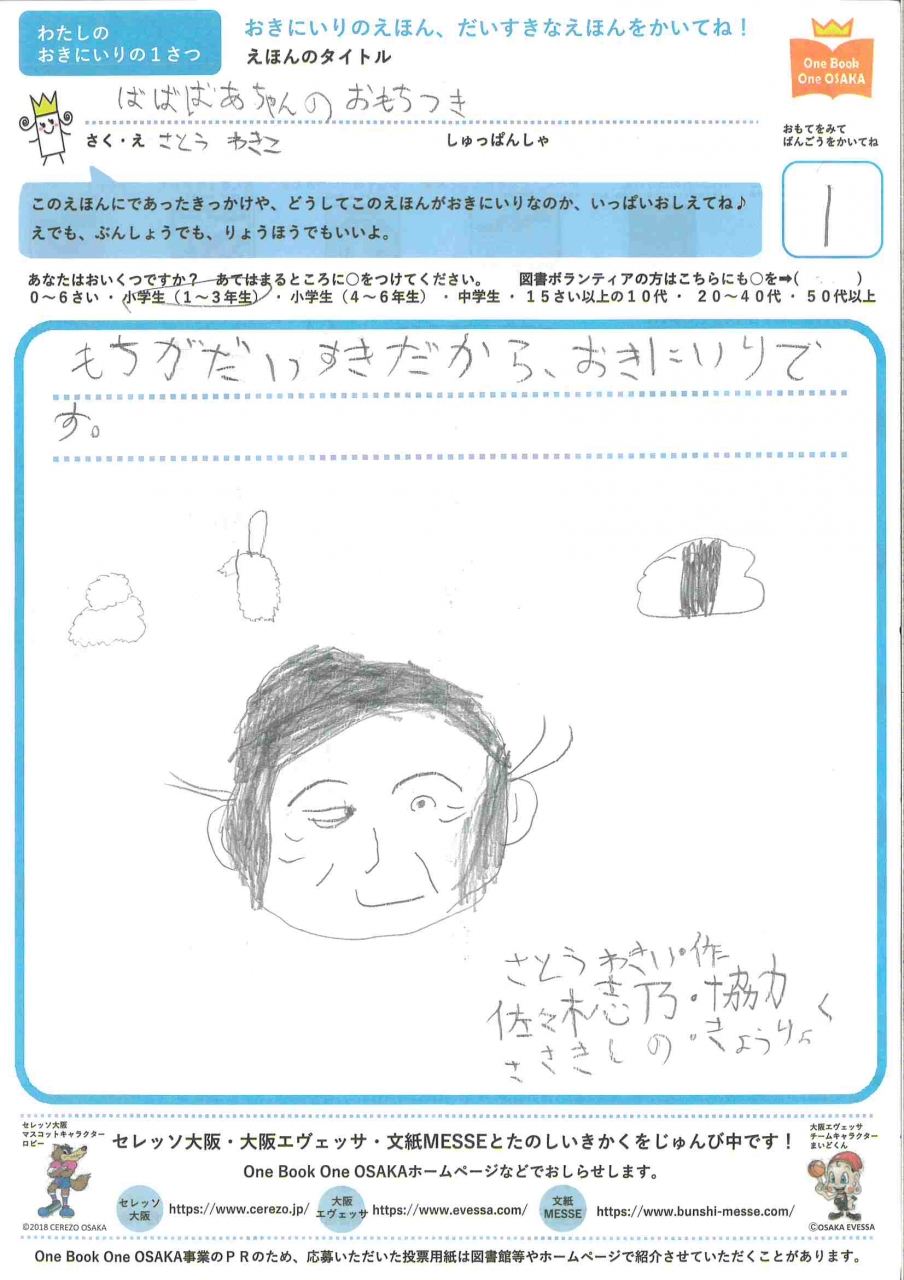 わたしの
おきにいりの１さつ
おきにいりのえほん、だいすきなえほんをかいてね！
えほんのタイトル
ばばばあちゃんの おもちつき
さく・え さとう わきこ
しゅっぱんしゃ
One Book
One OSAKA
おもてをみて
ばんごうをかいてね
1
このえほんにであったきっかけや、どうしてこのえほんがおきにいりなのか、いっぱいおしえてね♪
えでも、ぶんしょうでも、りょうほうでもいいよ。
あなたはおいくつですか？ あてはまるところに○をつけてください。 図書ボランティアの方はこちらにも○を➡( )
０～６さい ・ 小学生（１～３年生） ・ 小学生（４～６年生） ・ 中学生 ・ １５さい以上の１０代 ・ ２０～４０代 ・ ５０代以上
もちがだいすきだから、おきにいりで
す。
さとう わきこ・作
佐々木志乃・協力
ささきしの・きょうりょく
セレッソ大阪
マスコットキャラクター
ロビー
©2018 CEREZO OSAKA
セレッソ大阪・大阪エヴェッサ・文紙MESSEとたのしいきかくをじゅんび中です！
One Book One OSAKAホームページなどでおしらせします。
セレッソ
大阪
https://www.cerezo.jp/
大阪
エヴェッサ
https://www.evessa.com/
文紙
MESSE
https://www.bunshi-messe.com/
大阪エヴェッサ
チームキャラクター
まいどくん
©OSAKA EVESSA
One Book One OSAKA事業のＰＲのため、応募いただいた投票用紙は図書館等やホームページで紹介させていただくことがあります。